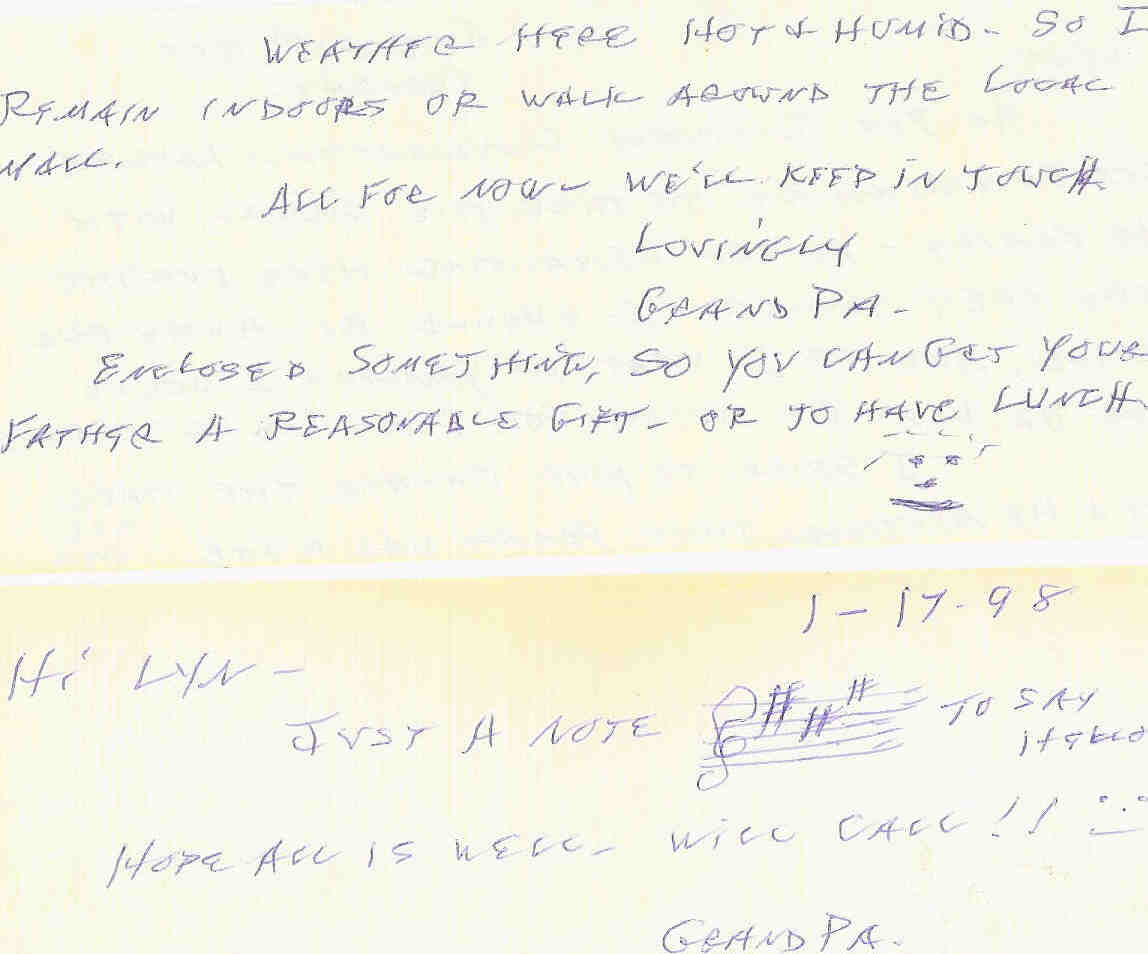 WEATHER HERE HOT & HUMID - SO I
REMAIN INDOORS OR WALK AROUND THE LOCAL
MALL.
ALL FOR NOW - WE'LL KEEP IN TOUCH
LOVINGLY
GRANDPA.
ENCLOSED SOMETHING, SO YOU CAN GET YOUR
FATHER A REASONABLE GIFT - OR TO HAVE LUNCH.
1-17-98
Hi LYN -
JUST A NOTE TO SAY
HELLO
HOPE ALL IS WELL - WILL CALL!!
GRANDPA.